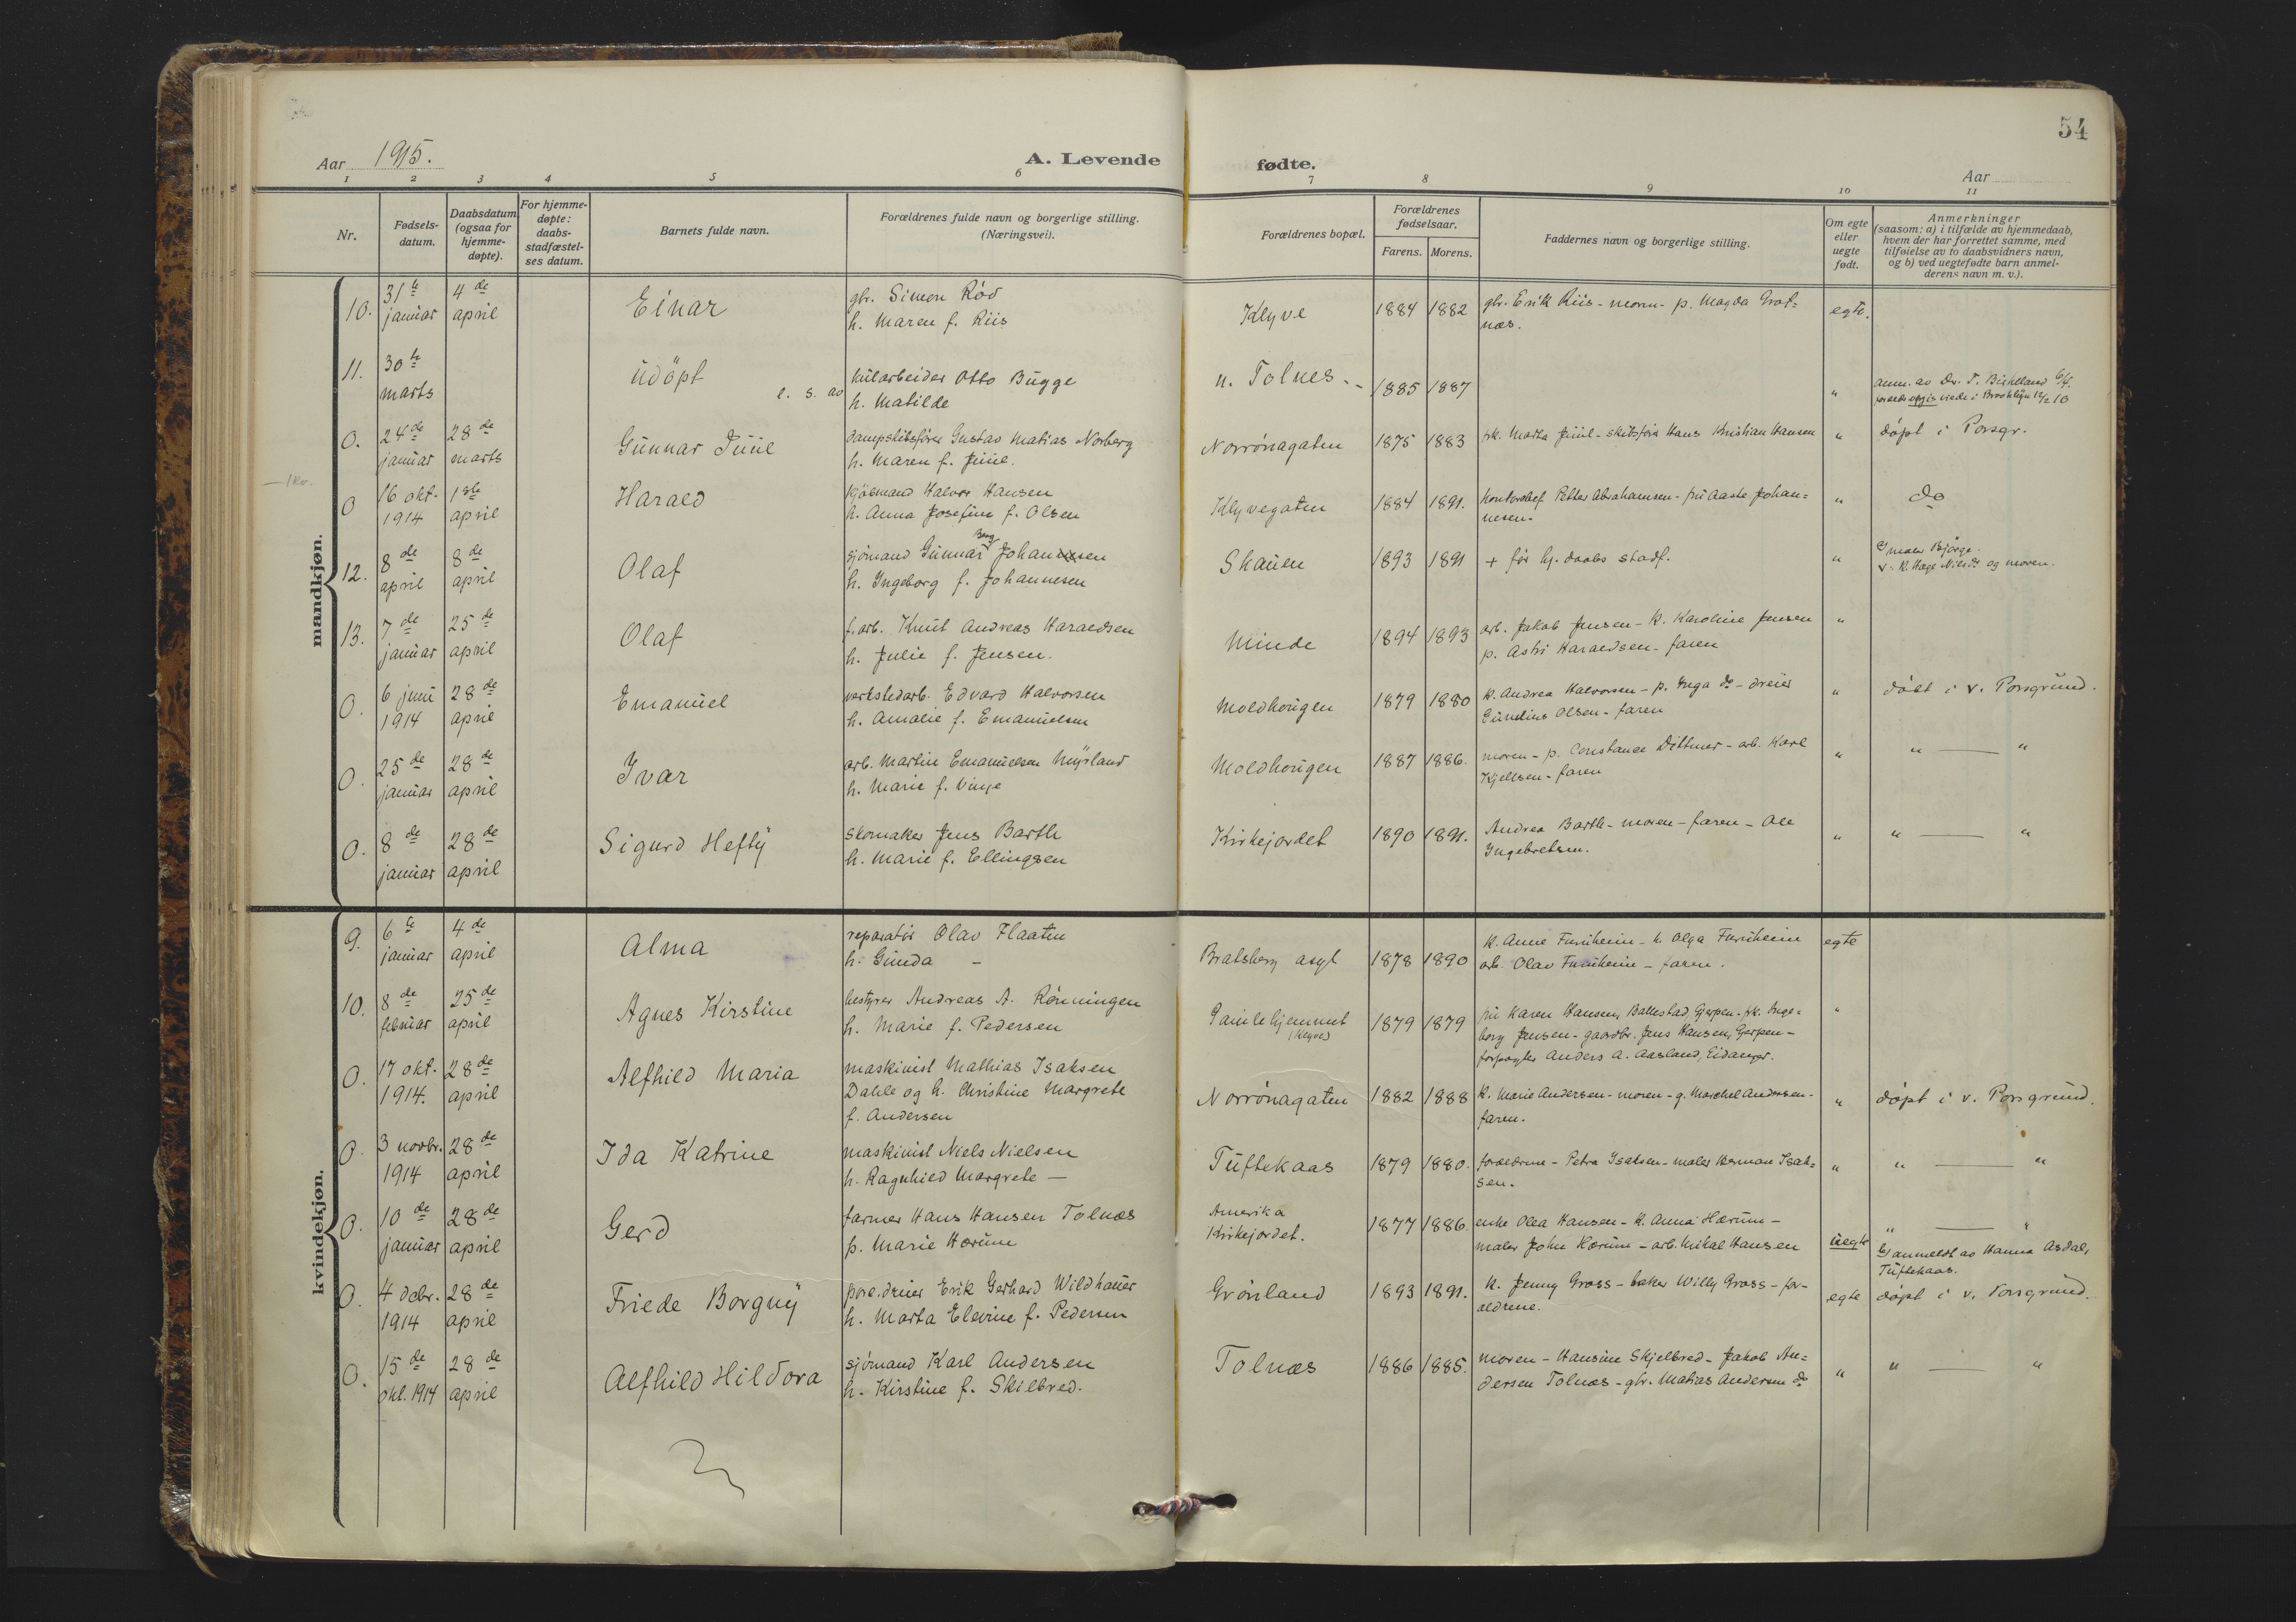 54
Aar 1915.
A. Levende fødte.
Aar
1 2 3 4 5 6 7 8 9 10 11
Nr.
Fødsels-
datum.
Daabsdatum
(ogsaa for
hjemme-
døpte).
For hjemme-
døpte:
daabs-
stadfæstel-
ses datum.
Barnets fulde navn.
Forældrenes fulde navn og borgerlige stilling.
(Næringsvei).
Forældrenes bopæl.
Forældrenes
fødselsaar.
Farens. Morens.
Faddernes navn og borgerlige stilling.
Om egte
eller
uegte
født.
Anmerkninger
(saasom: a) i tilfælde av hjemmedaab,
hvem der har forrettet samme, med
tilføielse av to daabsvidners navn,
og b) ved uegtefødte barn anmel-
derens navn m. v.).
mandkjøn.
10. 31te januar 4de april Einar
gbr. Simon Röd
h. Maren f. Riis
Klyve 1884 1882
gbr. Erik Riis - moren - p. Magda Grot=
næs.
egte.
11. 30te marts udöpt e. s. av
Otto Bugge
h. Matilde
n. Tolnes. 1885 1887
"
anm. av Dr. T. Birkeland 6/4.
viede i Brooklyn 12/2 10
0. 24de januar 28de marts Gunnar Juul
dampskibsförer Gustav Matias Norberg
h. Maren f. Juul.
Norrönagaten 1875 1883
frk. Marta Juul - skibsförer Hans Kristian Hansen
" döpt i Porsgr.
0 16 okt. 1914 1ste april Harald
sjömand Halvor Hansen
h. Anna Josefine f. Olsen
Klyvegaten 1884 1891.
Petter Abrahamsen - fru Aaste Johan=
nesen.
" do
12. 8de april 8de april Olaf
sjömand Gunnar Berg Johannesen
h. Ingeborg f. Johannesen
Skauen 1893 1891
+ för hj. daabs stadf.
"
maler Björge.
og moren.
13. 7de januar 25de april Olaf
f.arb. Knut Andreas Haraldsen
h. Julie f. Jensen.
Minde 1894 1893
arb. Jakob Jensen - k. Karoline Jensen
p. Astri Haraldsen - faren
"
0. 6 juni 1914 28de april Emanuel
verkstedarb. Edvard Halvorsen
h. Amalie f. Emanuelsen
Moldhougen 1879 1880
k. Andrea Halvorsen - p. Inga do - dreier
Gunelius Olsen - faren
" döbt i v. Porsgrund.
0. 25de januar 28de april Ivar
arb. Martin Emanuelsen Myrland
h. Marie f. Vinje
Moldhougen 1887 1886.
moren - p. Constance Dittmer - arb. Karl
Kjellsen - faren
" " — "
0. 8de januar 28de april Sigurd Hefty
skomaker Jens Barth
h. Marie f. Ellingsen
Kirkejordet 1890 1891.
Andrea Barth - moren - faren - Ole
Ingebretsen.
" " — "
kvindekjøn.
9. 6te januar 4de april Alma
reparatör Olav Flaaten
h. Gunda -
Bratsberg asyl 1878 1890
k. Anne Furuheim - k. Olga Furuheim
arb. Olav Furuheim - faren.
egte
10. 8de februar 25de april Agnes Kirstine
bestyrer Andreas A. Rönningen
h. Marie f. Pedersen
Gamlehjemmet
(Klyve)
1879 1879
fru Karen Hansen, Ballestad, Gjerpen - frk. Inge=
borg Jensen - gaardbr. Jens Hansen, Gjerpen -
forpagter Anders A. Aasland, Eidanger.
"
0. 17 okt. 1914. 28de april Alfhild Maria
maskinist Mathias Isaksen
Dahle og h. Christine Margrete
f. Andersen
Norrönagaten 1882 1888
k. Marie Andersen - moren - g. Andersen -
faren.
" döpt i v. Porsgrund.
0. 3 novbr. 1914 28de april Ida Katrine
maskinist Niels Nielsen
h. Ragnhild Margrete —
Tuftekaas 1879 1880.
forældrene - Petra Isaksen - maler Herman Isak=
sen.
" " — "
0. 10de januar 28de april Gerd
farmer Hans Hansen Tolnæs
p. Marie Hærum
Amerika
Kirkejordet.
1877 1886.
enke Olea Hansen - k. Anna Hærum -
maler John Hærum - arb. Mikal Hansen
uegte
" — "
anmeldt av Hanna Asdal,
Tuftekaas.
0. 4 debr. 1914 28de april Friede Borgny
porc.dreier Erik Gerhard Wildhauer
h. Marta Elevine f. Pedersen
Grönland 1893 1891.
k. Jenny Gross - baker Willy Gross - for-
ældrene.
egte döpt i v. Porsgrund.
0. 15de okt. 1914 28de april Alfhild Hildora
sjömand Karl Andersen
h. Kirstine f. Skilbred.
Tolnæs 1886 1885.
moren - Hansine Skjelbred - Jakob An=
dersen Tolnæs - gbr. Matias Andersen do
" " — "